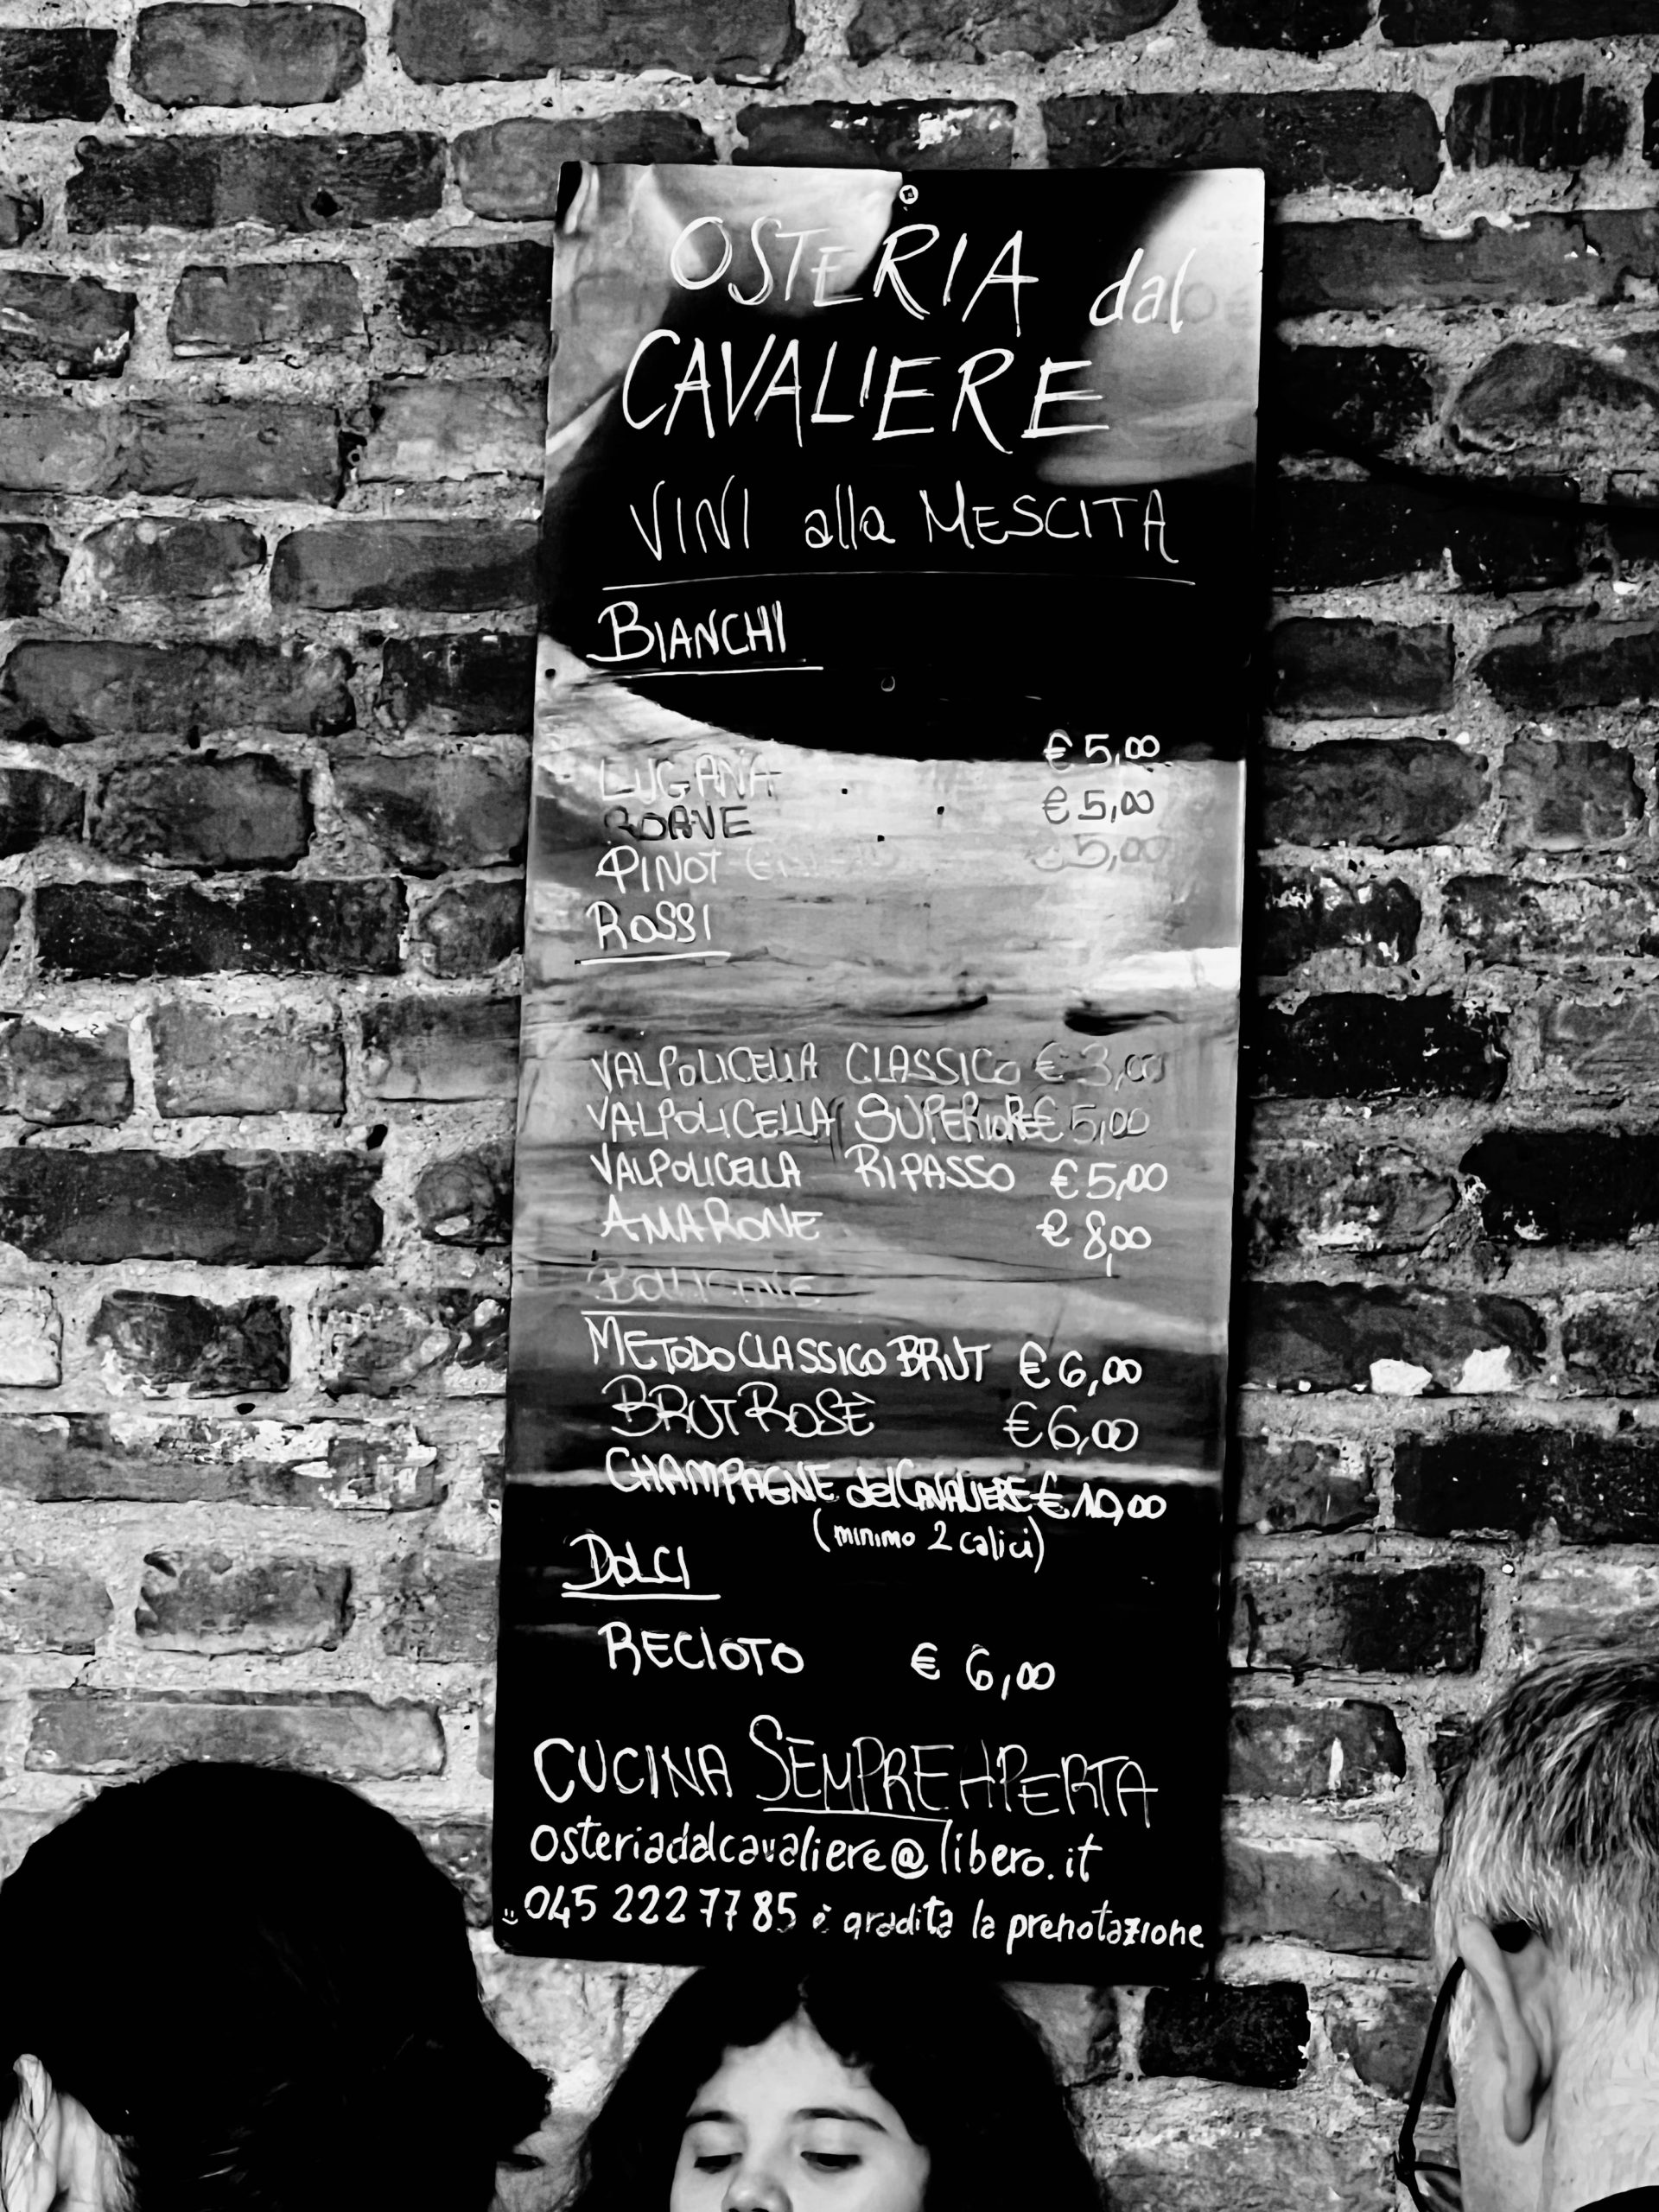 OSTERIA dal
CAVALIERE
VINI alla MESCITA
BIANCHI
LUGANA € 5,00
ROANE € 5,00
PINOT 5,00
ROSSI
VALPOLICELLA CLASSICO € 3,00
VALPOLICELLA SUPERIORE € 5,00
VALPOLICELLA RIPASSO € 5,00
AMARONE € 8,00
METODO CLASSICO BRUT € 6,00
BRUT ROSÈ € 6,00
CHAMPAGNE del CAVALIERE € 10,00
(minimo 2 calici)
DOLCI
RECIOTO € 6,00
CUCINA SEMPRE APERTA
osteriadalcavaliere@libero.it
045 222 77 85 è gradita la prenotazione